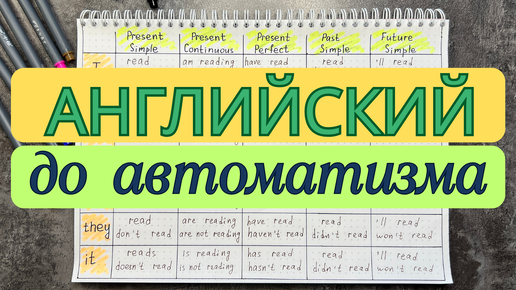 Present Present Present Past Future
Simple Continuous Perfect Simple Simple
I read am reading have read read 'll read
АНГЛИЙСКИЙ
до автоматизма
they read are reading have read read 'll read
don't read are not reading haven't read didn't read won't read
it reads is reading has read read 'll read
doesn't read is not reading hasn't read didn't read won't read